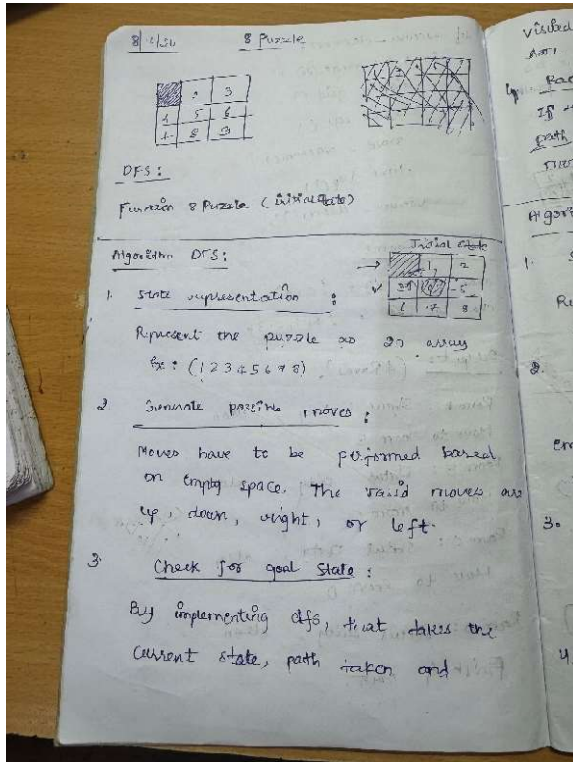 8 Puzzle
3
5 6
8 3
DFS :
Function 8 Puzzle (initial state)
Algorithm DFS :
Initial state
1 2
5
6 7 8
1. State representation :
Represent the puzzle as 2D array
Ex : (1 2 3 4 5 6 7 8)
2 Generate possible moves :
Moves have to be performed based
on empty space. The valid moves are
up, down, right, or left.
3. Check for goal state :
By implementing dfs, that takes the
current state, path taken and
visited
4.
If
path
Algori
1.
Re
2.
em
3.
4.